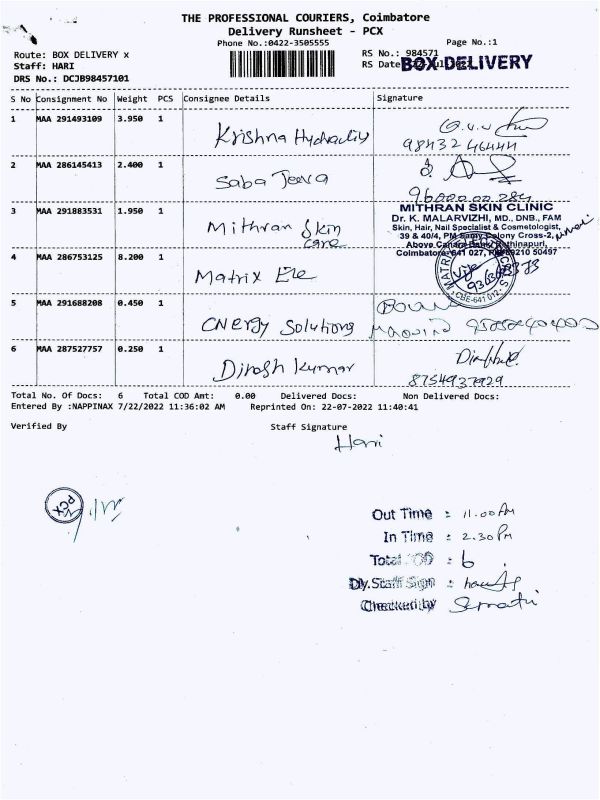 THE PROFESSIONAL COURIERS, Coimbatore
Delivery Runsheet - PCX
Phone No.:0422-3505555
Page No.:1
Route: BOX DELIVERY x
RS No.: 984571
Staff: HARI
RS Date
BOX DELIVERY
DRS No.: DCJB98457101
S No Consignment No Weight PCS Consignee Details Signature
1 MAA 291493109 3.950 1 Krishna Hydraulic
98432 46444
2 MAA 286145413 2.400 1 Saba Jeeva
3 MAA 291883531 1.950 1 Mithran Skin care
MITHRAN SKIN CLINIC
Dr. K. MALARVIZHI, MD., DNB., FAM
Skin, Hair, Nail Specialist & Cosmetologist,
39 & 40/4, PM Samy Colony Cross-2,
Above Canara Bank, Rathinapuri,
Coimbatore-641 027, 99210 50497
4 MAA 286753125 8.200 1 Matrix Ele
MATRIX
CBE-641 012
5 MAA 291688208 0.450 1 CNergy Solutions
6 MAA 287527757 0.250 1 Dinesh Kumar
8754937929
Total No. Of Docs: 6 Total COD Amt: 0.00 Delivered Docs: Non Delivered Docs:
Entered By :NAPPINAX 7/22/2022 11:36:02 AM Reprinted On: 22-07-2022 11:40:41
Verified By Staff Signature
Hari
PCX
Out Time : 11.00 AM
In Time : 2.30 PM
Total OD : 6
Dly.Staff Sign :
Checked by